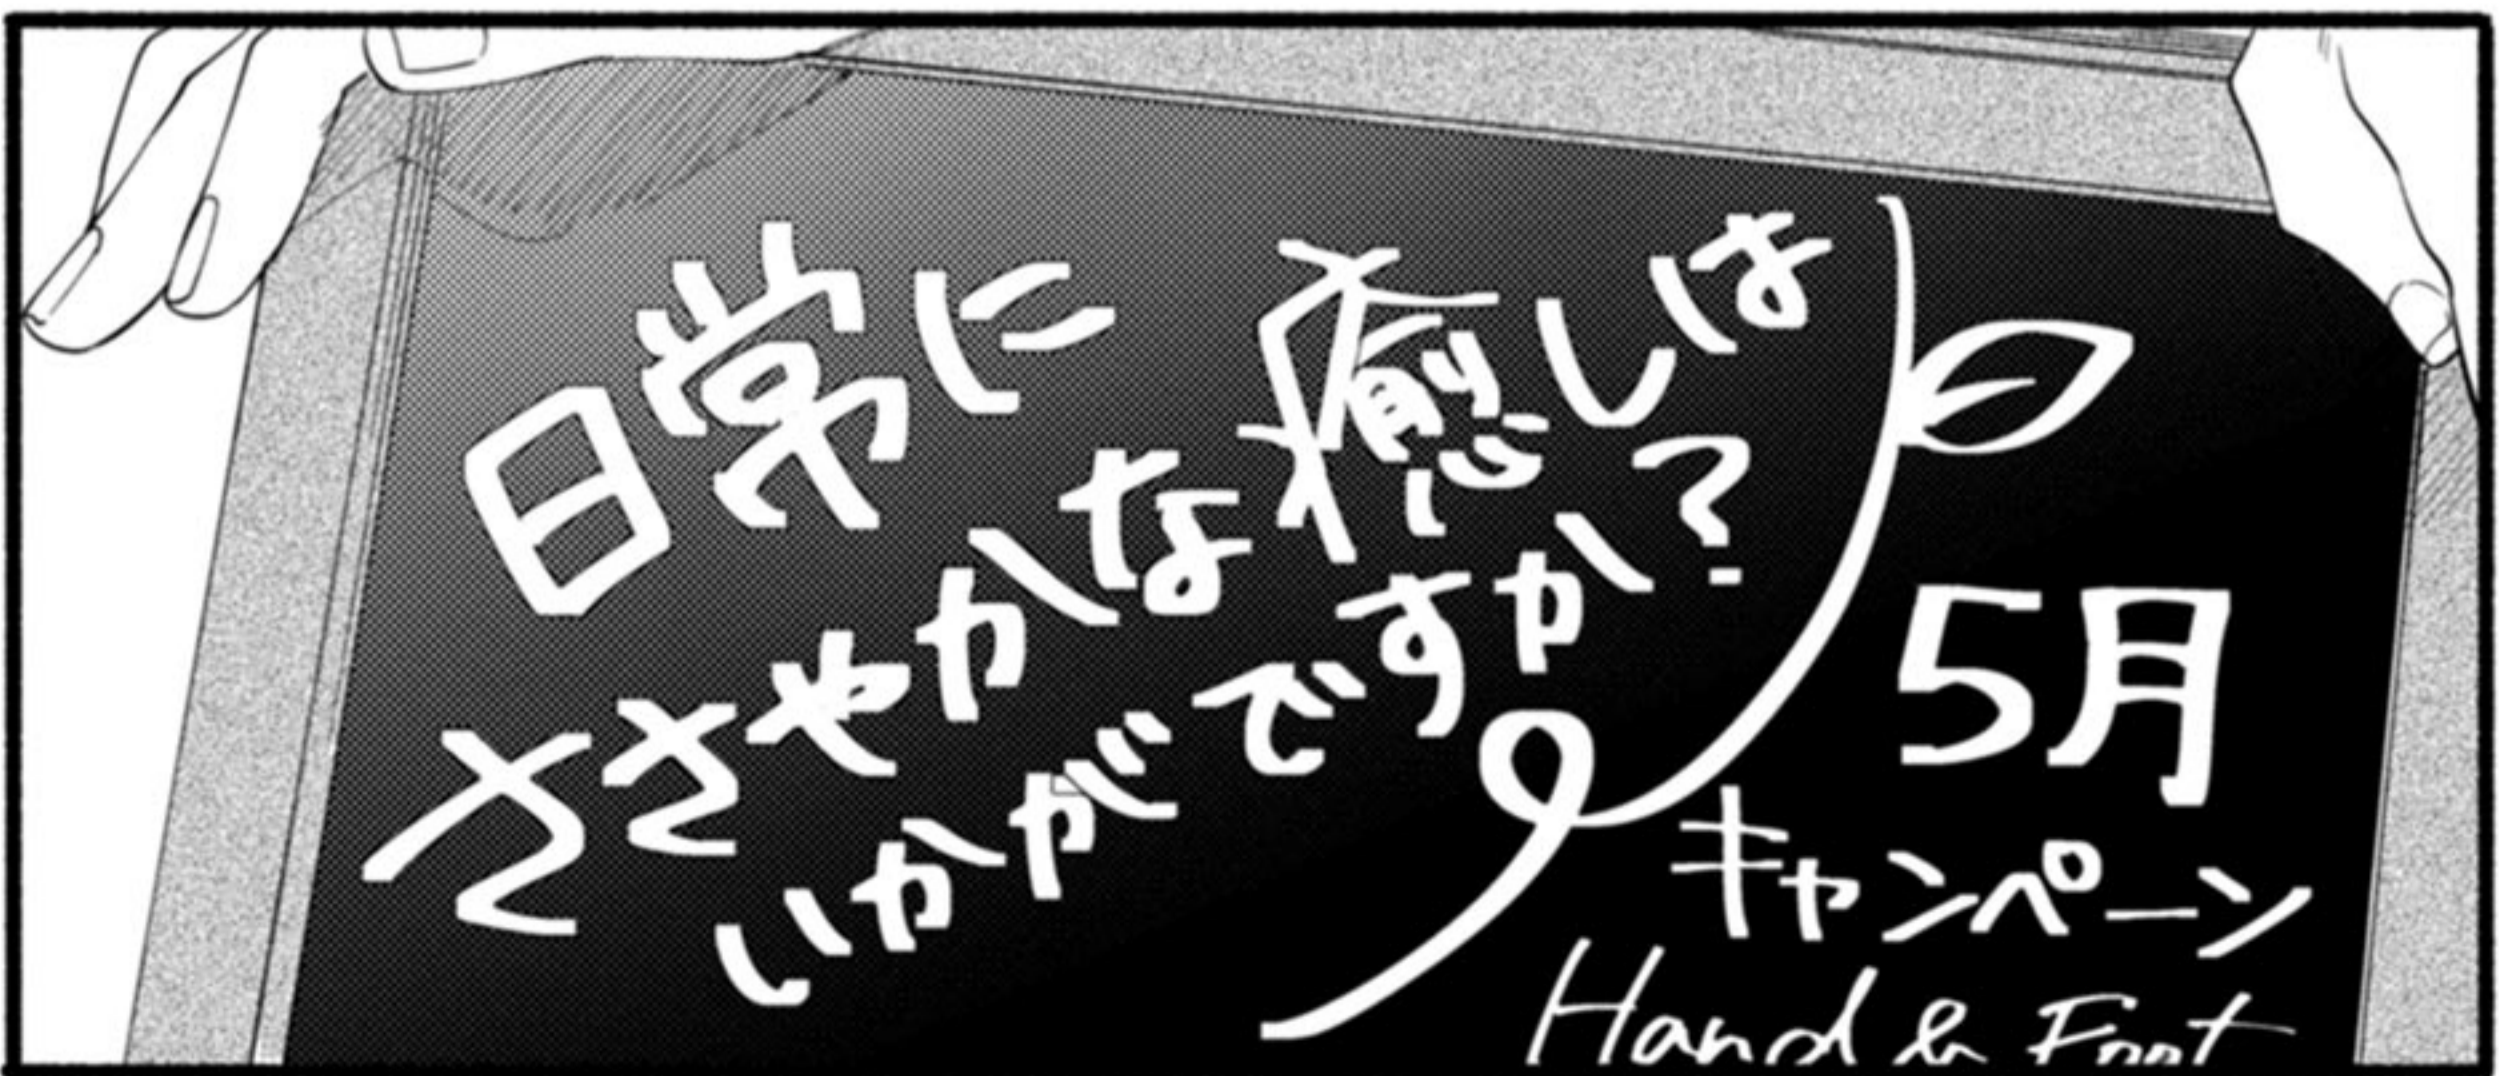 日常に
ささやかな癒しは
いかがですか?
5月
キャンペーン
Hand & Foot